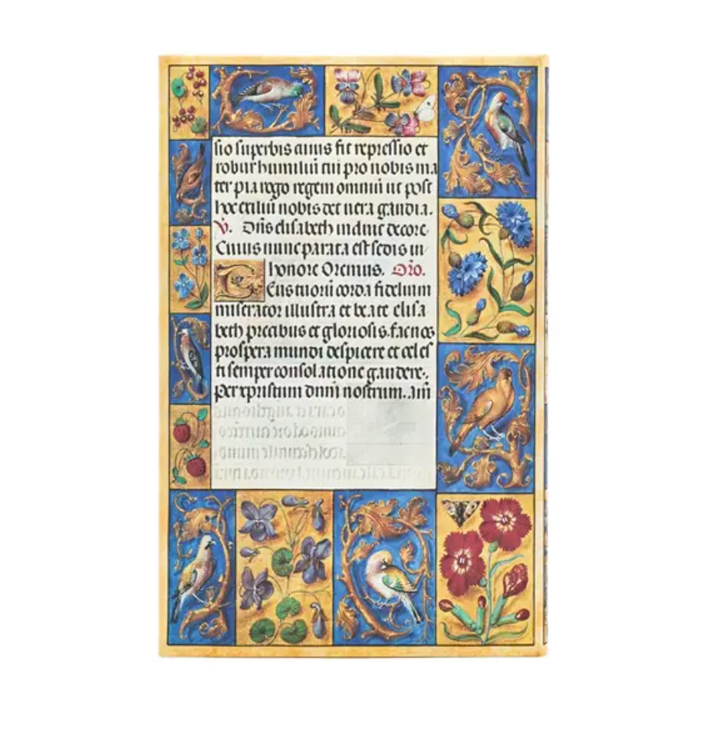 sio superbis cuius fit repressio et
robur humiliū tui pro nobis ma
ter pia rogo regem omniū ut post
hoc exiliū nobis det vera gaudia.
V. Dn̄s elisabeth induit decore.
Cuius nunc parata est sedis in
honore Oremus. Oro.
Deus tuorū corda fidelium
miserator illustra et beate elisa
beth precibus et gloriosis fac nos
prospera mundi despicere et celes
ti semper consolatione gaudere.
Per xpristum dnm̄ nostrum. Am̄